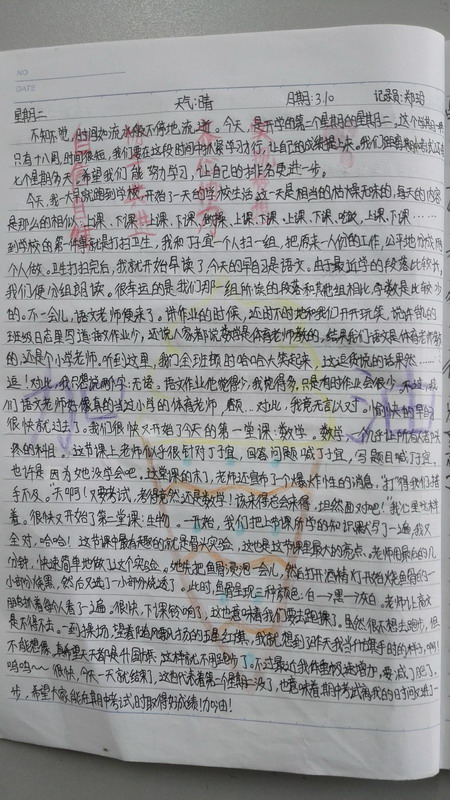 NO
DATE
星期二 天气:晴 日期:3.10 记录员:郑
不知不觉,时间如流水般不停地流逝。今天,是开学的第一个星期的星期二,这个学期
只有十八周,时间很短,我们要在这段时间中抓紧学习才行,让自己的成绩提上去。我们距离期中考试还有
七个星期多天,希望我们能努力学习,让自己的排名更进一步。
今天,我一大早就跑到学校,开始了一天的学校生活。这一天是相当的枯燥无味的,每天的内容
是那么的相似,上课、下课、上课、下课、上课、下课、上课、下课、吃饭、上课、下课……
到学校的第一件事就是打扫卫生,我和丁宜一个人扫一组,把原来一人份的工作,公平地分成两
个人做。卫生打扫完后,我就开始早读了,今天的早自习是语文。由于最近学的段落比较长,
我们便分组朗读。很幸运的是我们那一组所读的段落和其他组相比,字数是比较少
的。不一会儿,语文老师便来了。讲作业的时候,还时不时地和我们开开玩笑,说去年的
班级日志里写道:语文作业少,还说人家都说数学是体育老师教的,结果我们语文是体育老师教
的,还是个小学老师。听到这里,我们全班顿时哈哈大笑起来,
逗!对此,我只想说两个字:无语。语文作业他觉得少,我觉得多,只是有时作业会很少。不过,我
们语文老师若像真的当过小学的体育老师,额…对比,我竟无言以对。愉快的早自习
很快就过去了。我们很快又开始了今天的第一堂课:数学。数学,一个让所有
的科目!这节课上老师似乎很针对丁宜,回答问题喊丁宜,写题目喊丁宜。
也许是因为她没学会吧。这堂课的末了,老师还宣布了一个爆炸性的消息,打得我们措
手不及。“天啊!又要考试,老师竟然还是数学!该来得总会来得,坦然面对吧!”我心里这样
着。很快又开始了第二堂课:生物。一开始,我们把上节课所学的知识默写了一遍,我又
全对,哈哈!这节课中最有趣的就是骨头实验,这也是这节课里最大的亮点。老师用最后的几
分钟,快速简单地做了这个实验。她先把鱼骨浸泡一会儿,然后打开酒精灯开始烧鱼骨的一
小部份烧黑,然后又选了一小部分烧透了。此时,鱼骨呈现三种颜色:白一黑一灰白。老师让
拿着给众人看了一遍。很快,下课铃响了,这也意味着我们要去跑操了。虽然很不想去跑步,但
是不得不去。一到操场,望着随风飘扬的五星红旗,我就想到昨天我当升旗手时的光荣,啊!
不敢想像,真希望天天都是升国旗,这样就不用跑步了。不过最近我体重极速增加,要减了肥了。
呜呜~~ 很快,今天一天就结束了,这也代表着第一个星期二没了,也意味着期中考试离我的日时间又近了一
步,希望大家能在期中考试时取得好成绩!加油!